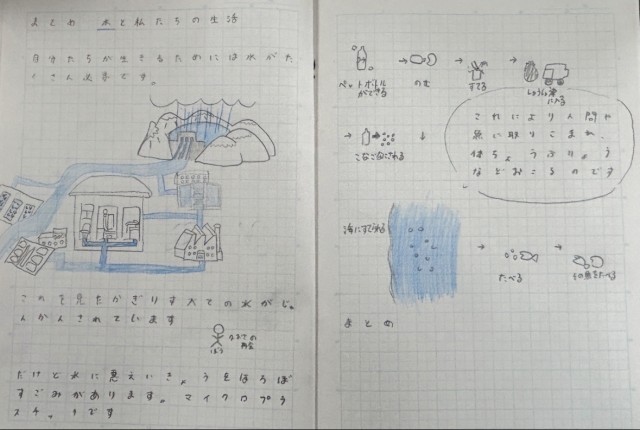 まとめ 水と私たちの生活
自分たちが生きるためには水がた
くさん必要です。
この図を見たかぎりすべての水がじゅ
んかんされています
ぼう
だけど水に悪えいきょうをほろぼ
すごみがあります。マイクロプラ
スチックです
ペットボトル
ができる
のむ
すてる
しゅうしゅう車
に入る
こなごなにされる
これにより人間や
魚に取りこまれ、
などおこるのです
海にすてられる
たべる
その魚をたべる
まとめ